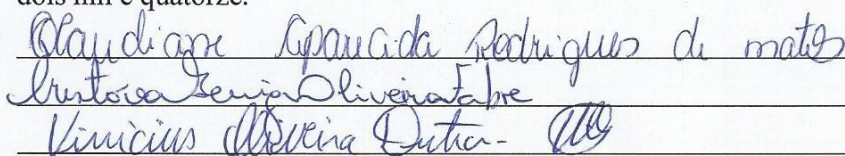 dois mil e quatorze.
Claudiane Aparecida Rodrigues de matos
Oliveira Fabre
Vinicius Oliveira Dutra